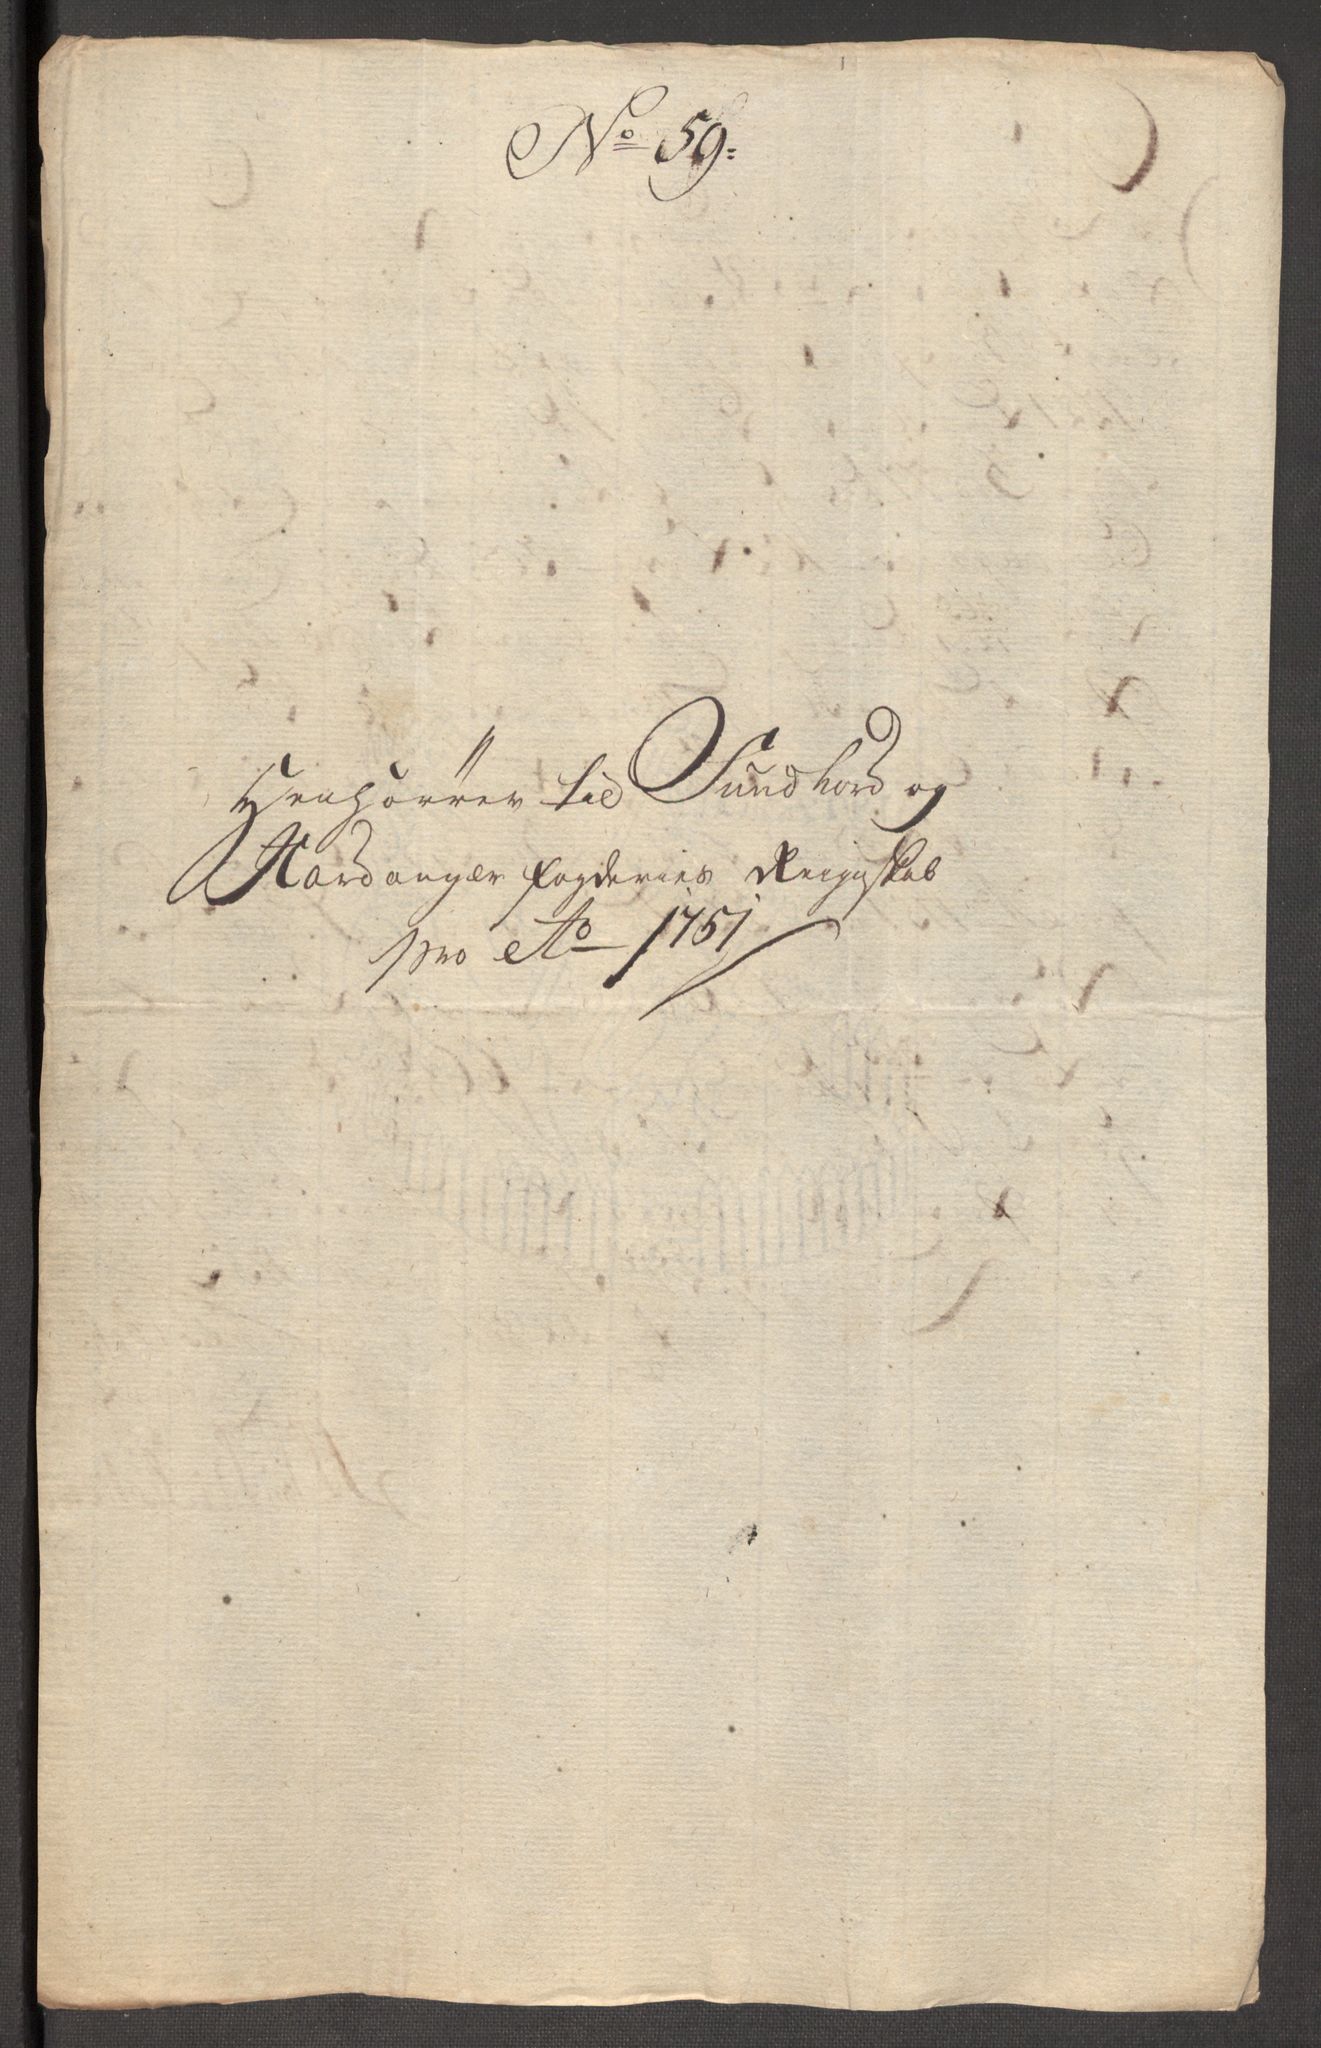 No 59:
Henhörrer til Sundhord og
Hardanger fogderies Reignskab
pro Ao 1751